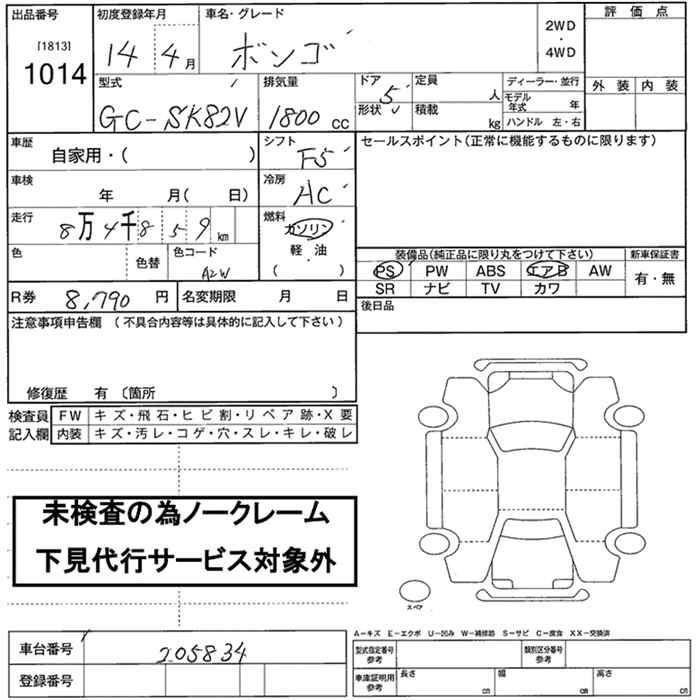 出品番号
[1813]
1014
初度登録年月
14 4月
車名・グレード
ボンゴ
2WD
・
4WD
評価点
外装 内装
型式
GC-SK82V
排気量
1800 cc
ドア 5
形状 V
定員 人
積載 kg
ディーラー・並行
モデル年式 年
ハンドル 左・右
車歴
自家用・( )
シフト
F5
セールスポイント(正常に機能するものに限ります)
車検
年 月( 日)
冷房
AC
走行
8万4千859km
燃料
ガソリン
軽・油
( ・ )
色
色替
色コード
A2W
装備品(純正品に限り丸をつけて下さい)
新車保証書
PS PW ABS エアB AW
SR ナビ TV カワ
有・無
R券 8,790 円
名変期限 月 日
後日品
注意事項申告欄 (不具合内容等は具体的に記入して下さい)
修復歴 有 (箇所 )
検査員記入欄
FW キズ・飛石・ヒビ割・リペア跡・X要
内装 キズ・汚レ・コゲ・穴・スレ・キレ・破レ
未検査の為ノークレーム
下見代行サービス対象外
スペア
A-キズ E-エクボ U-凹み W-補修跡 S-サビ C-腐食 XX-交換済
車台番号 205834
登録番号
型式指定番号参考
類別区分番号参考
車庫証明用参考
長さ cm
幅 cm
高さ cm